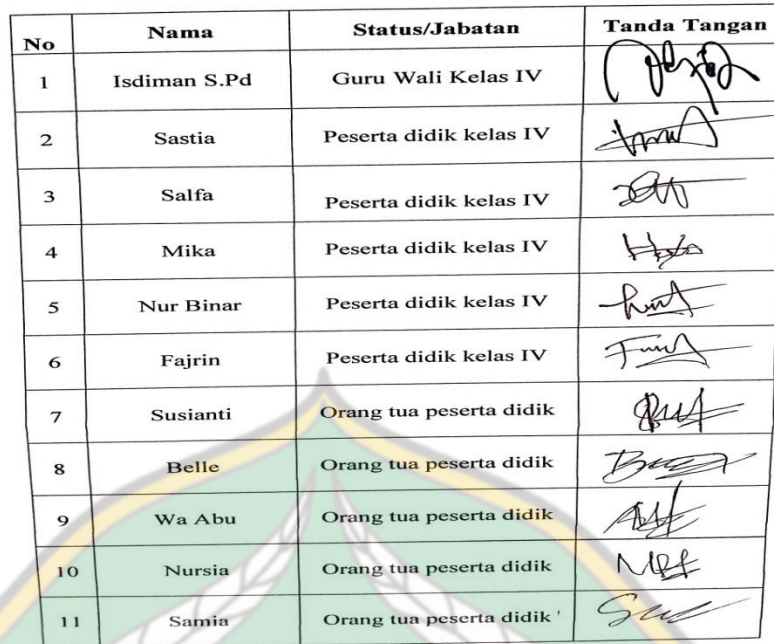 No Nama Status/Jabatan Tanda Tangan
1 Isdiman S.Pd Guru Wali Kelas IV
2 Sastia Peserta didik kelas IV
3 Salfa Peserta didik kelas IV
4 Mika Peserta didik kelas IV
5 Nur Binar Peserta didik kelas IV
6 Fajrin Peserta didik kelas IV
7 Susianti Orang tua peserta didik
8 Belle Orang tua peserta didik
9 Wa Abu Orang tua peserta didik
10 Nursia Orang tua peserta didik
11 Samia Orang tua peserta didik